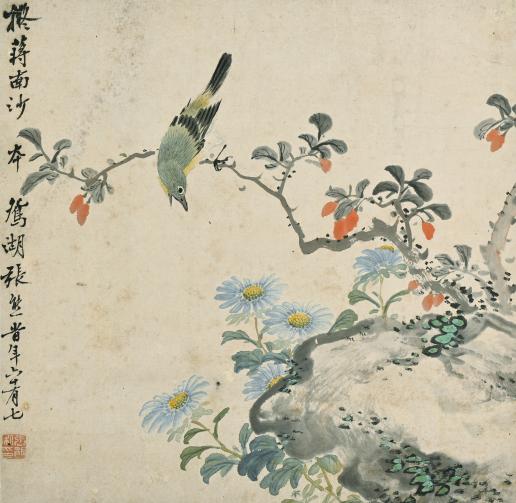 擬蔣南沙本鴛湖張熊旹年六十有七